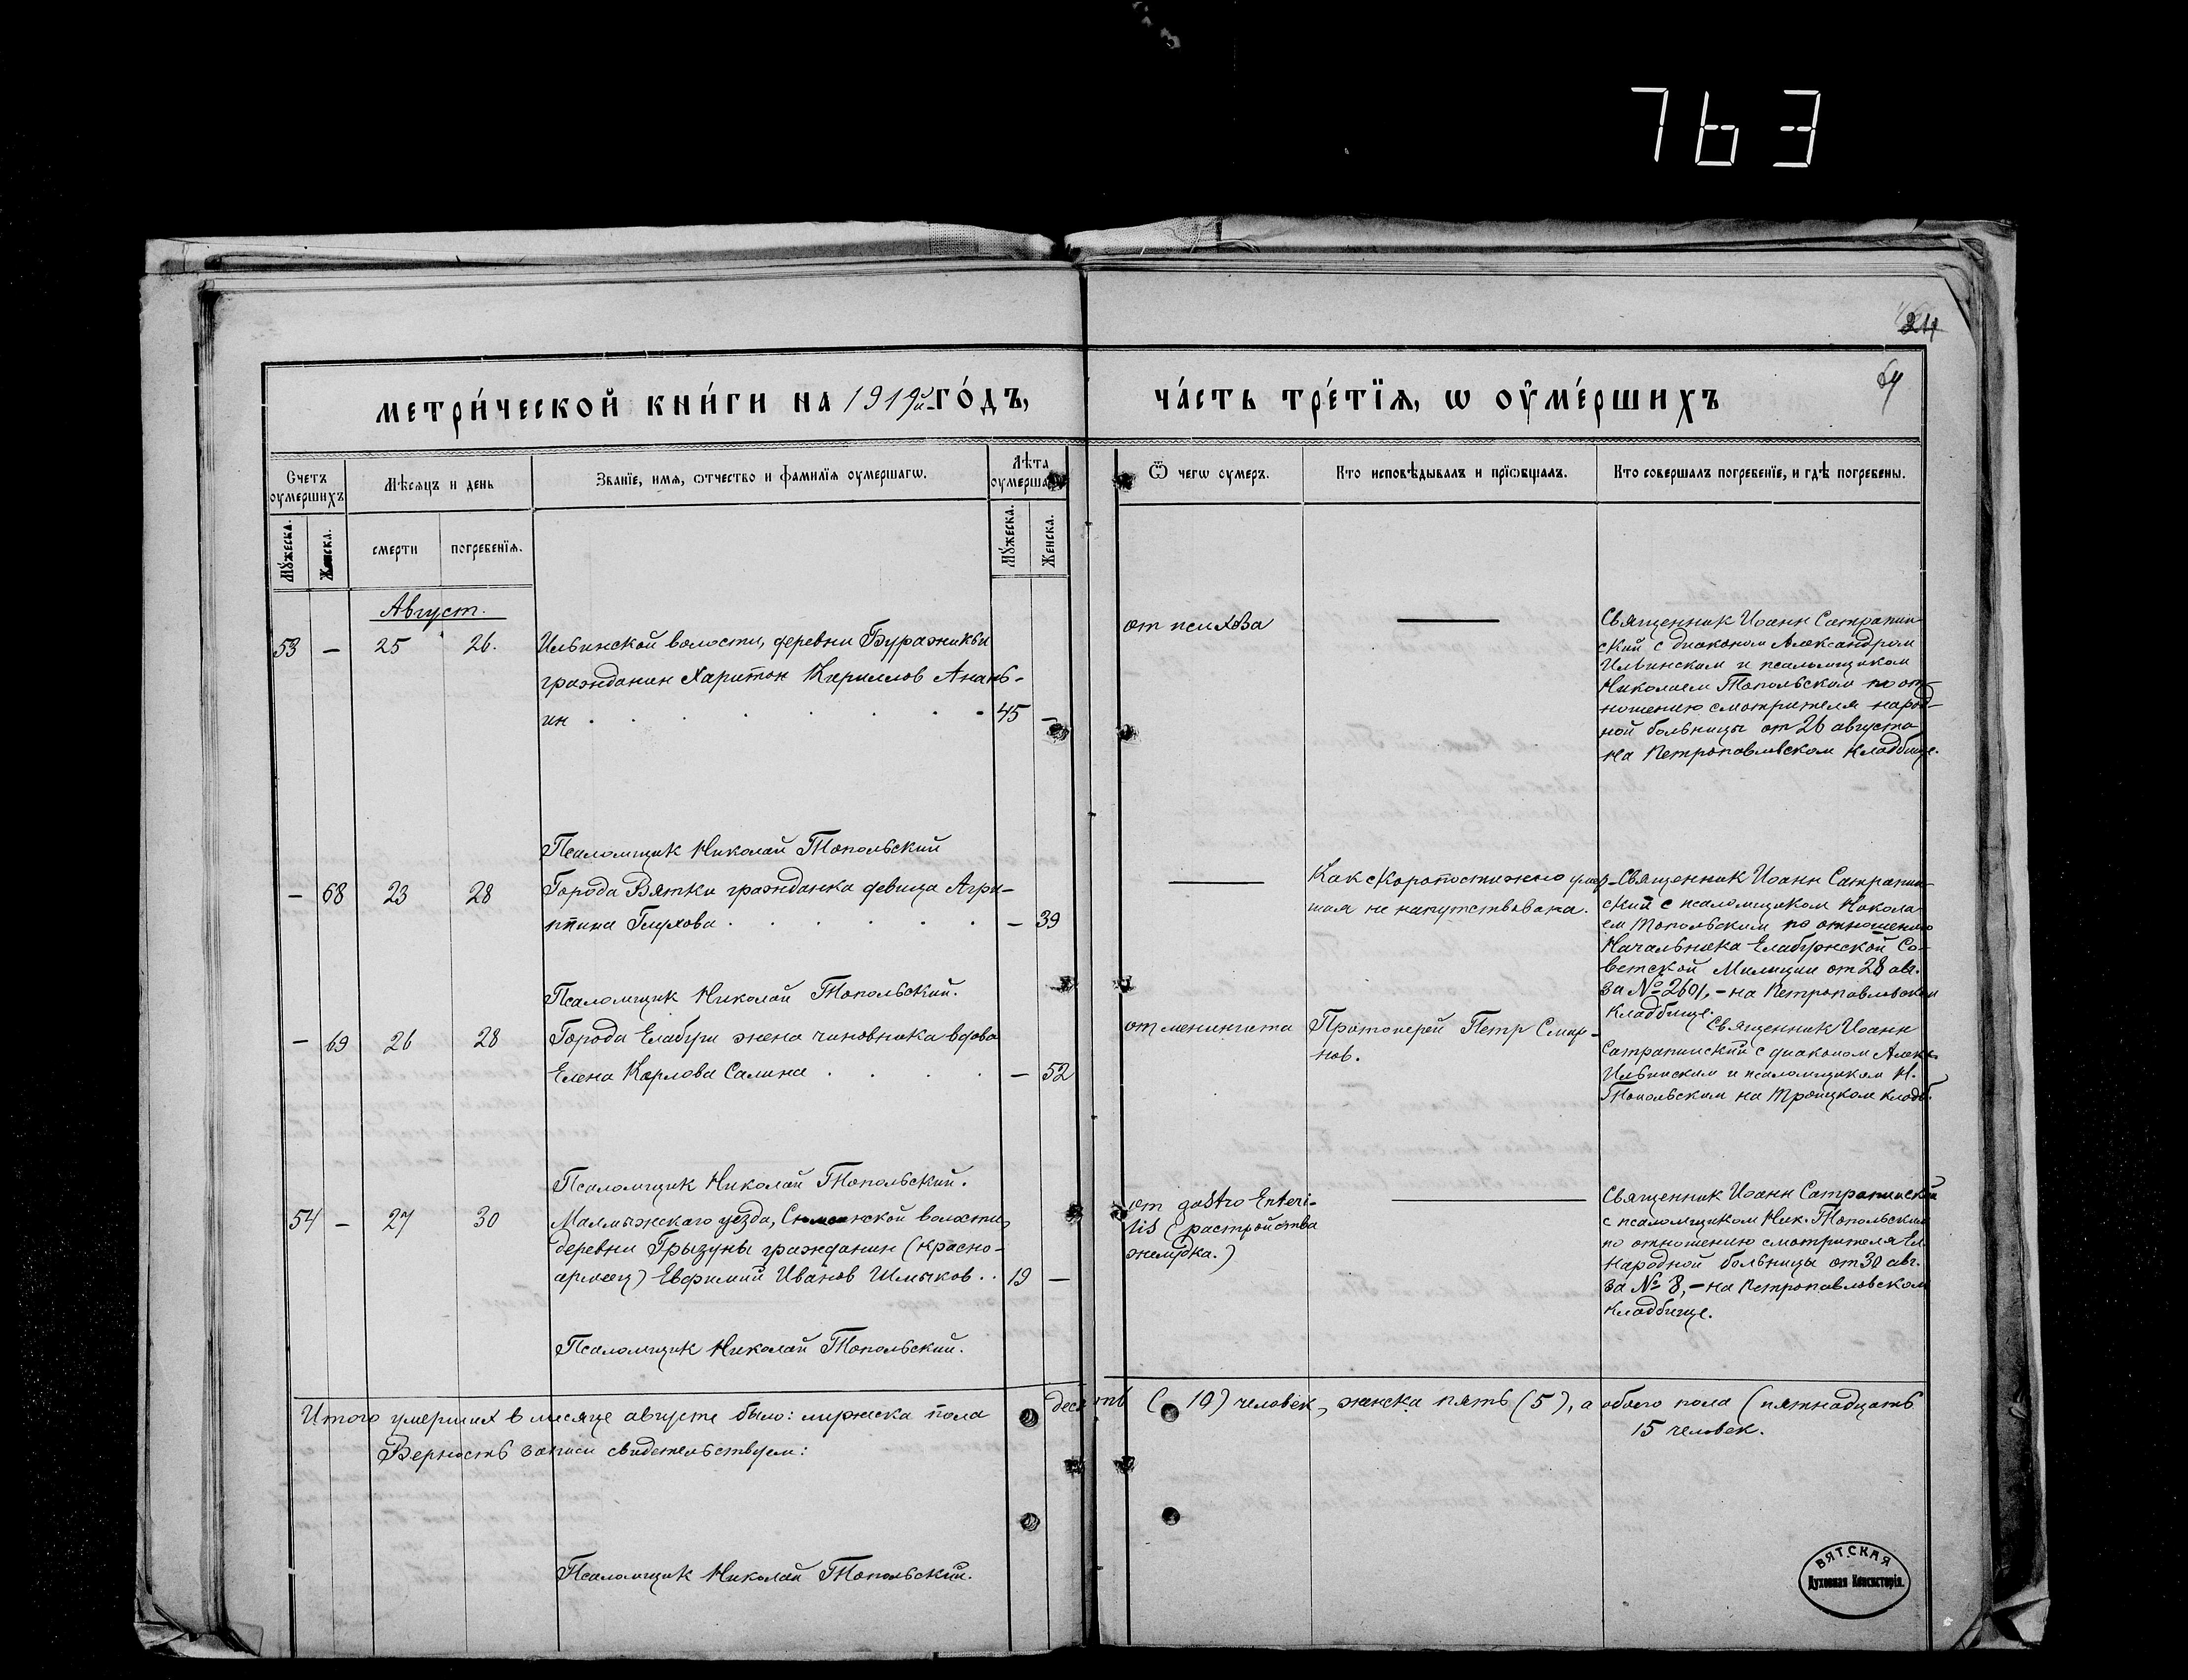 763
24
64
метри́ческой кни́ги на 1919й го́дъ,
ча́сть тре́тїя, ѡ оу҆ме́ршихъ
Счетъ оумершихъ
Мѣсяцъ и день
Званїе, имѧ, ѡтчество и фамилїѧ оумершагѡ.
Лѣта оумерша
Ѿ чегѡ оумеръ.
Кто исповѣдывалъ и прїѡбщалъ.
Кто совершалъ погребенїе, и гдѣ погребены.
Мꙋжеска.
Женска.
смерти
погребенїѧ.
Мꙋжеска.
Женска.
Август.
53 — 25 26. Ильинской волости, деревни Буражникьи
гражданин Харитон Кириллов Анань-
ин . . . . . . . . 45 —
от психоза
———
Священник Иоанн Сатрапин
ский с диаконом Александром
Ильинским и псаломщиком
Николаем Топольским по от-
ношению смотрителя народ-
ной больницы от 26 августа
на Петропавловском кладбище.
Псаломщик Николай Топольский
— 68 23 28 Города Вятки гражданка девица Агри-
ппина Глухова . . . . . . — 39
———
Как скоропостижно умер-
шая не напутствована.
Священник Иоанн Сатрапин-
ский с псаломщиком Никола
ем Топольским по отношению
Начальника Елабужской Со-
ветской Милиции от 28 авг.
за № 2601, – на Петропавловском
кладбище.
Псаломщик Николай Топольский.
— 69 26 28 Города Елабуги жена чиновника вдова
Елена Карлова Салина . . . . — 52
от менингита
Протоиерей Петр Смир-
нов.
Священник Иоанн
Сатрапинский с диаконом Алекс.
Ильинским и псаломщиком Н.
Топольским на Троицком кладб.
Псаломщик Николай Топольский.
54 — 27 30 Малмыжскаго уезда, Сюмсинской волости,
деревни Грызуны гражданин (красно-
армеец) Евфимий Иванов Шмыков . . 19 —
от gastro Enteri-
tis (растройства
желудка.)
———
Священник Иоанн Сатрапинский
с псаломщиком Ник. Топольским
по отношению смотрителя Ел.
Народной больницы от 30 авг.
за № 8, – на Петропавловском
кладбище.
Псаломщик Николай Топольский.
Итого умерших в месяце августе было: мужеска пола десять (10) человек, женска пять (5), а обоего пола (пятнадцать
15 человек.
Верность записи свидетельствуем:
Псаломщик Николай Топольский.
ВЯТСКАЯ
Духовная Консисторія.